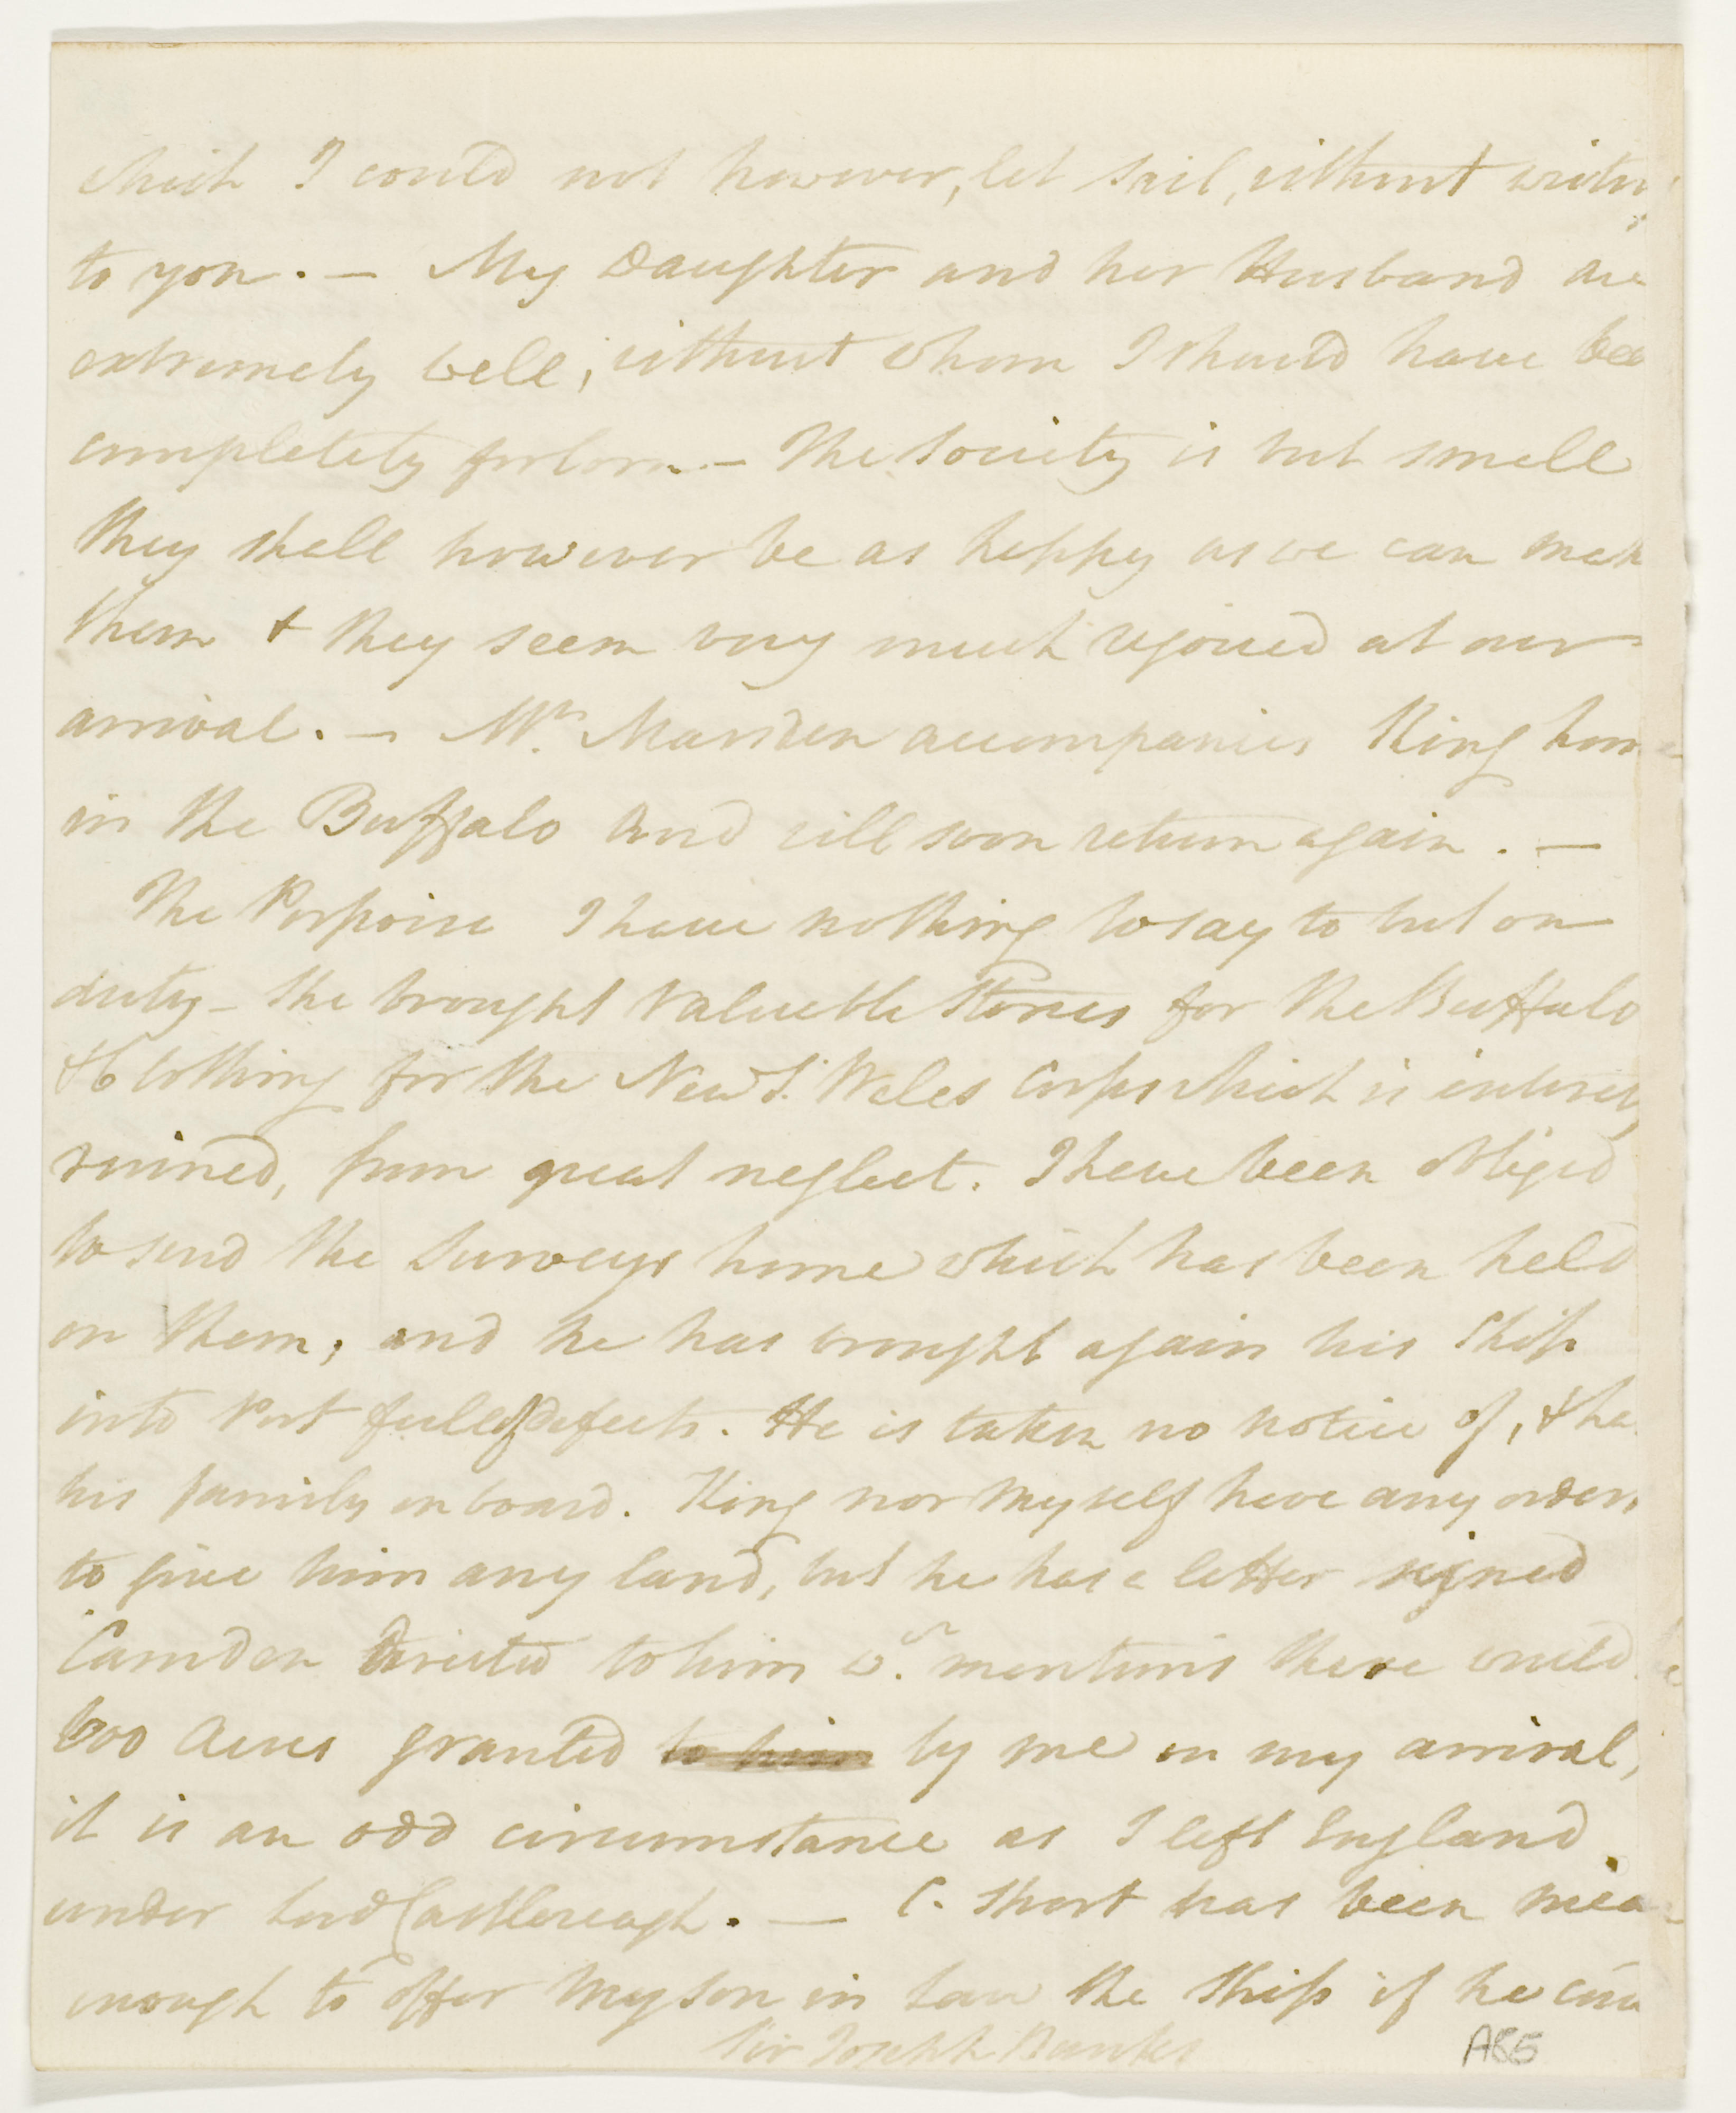 which I could not however, let sail, without writin
to you. — My Daughter and her Husband are
extremely well, without whom I should have bee
completely forlorn — The Society is but small
they shall however be as happy as we can mak
them & they seem very much rejoiced at our
arrival. — Mr. Marsden accompanies King home
in the Buffalo and will soon return again. —
The Porpoise I have nothing to say to but on
duty — She brought valuable Stores for the Buffalo
& Clothing for the New S. Wales Corps which is entirely
ruined, from great neglect. I have been obliged
to send the Surveys home which has been held
on them, and he has brought again his Ship
into Port full of defects. He is taken no notice of, & ha
his family on board. King nor myself have any orders
to give him any land, but he has a letter signed
Camden directed to him wh. mentions there would be
600 Acres granted to him by me on my arrival,
it is an odd circumstance as I left England
under Lord Castlereagh. — C. Short has been mean
enough to offer my Son in Law the Ship if he
Sir Joseph Banks
A85